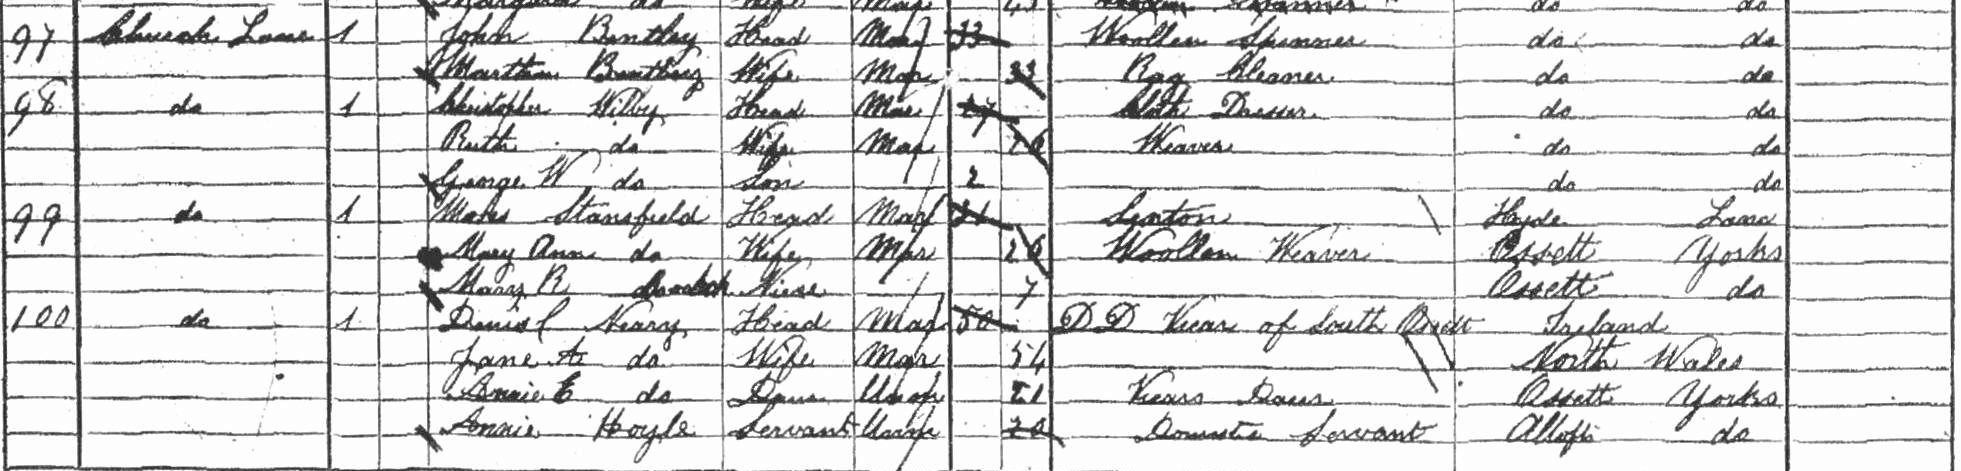 do Wife Mar 43 do do
97 Church Lane 1 John Bentley Head Mar 33 Woollen Spinner do do
Martha Bentley Wife Mar 33 Rag Cleaner do do
98 do 1 Christopher Wilby Head Mar 27 Cloth Dresser do do
Ruth do Wife Mar Weaver do do
George W do Son 2 do do
99 do 1 Stansfield Head Mar Sexton Hyde Lanc
Mary Ann do Wife Mar 26 Woollen Weaver Ossett Yorks
Mary R Niece 7 Ossett do
100 do 1 Daniel Neary Head Mar 50 D D Vicar of South Ossett Ireland
Jane A do Wife Mar 54 North Wales
Annie E do Daur Unm 21 Vicars Daur Ossett Yorks
Annie Hoyle Servant Unm 20 Domestic Servant do